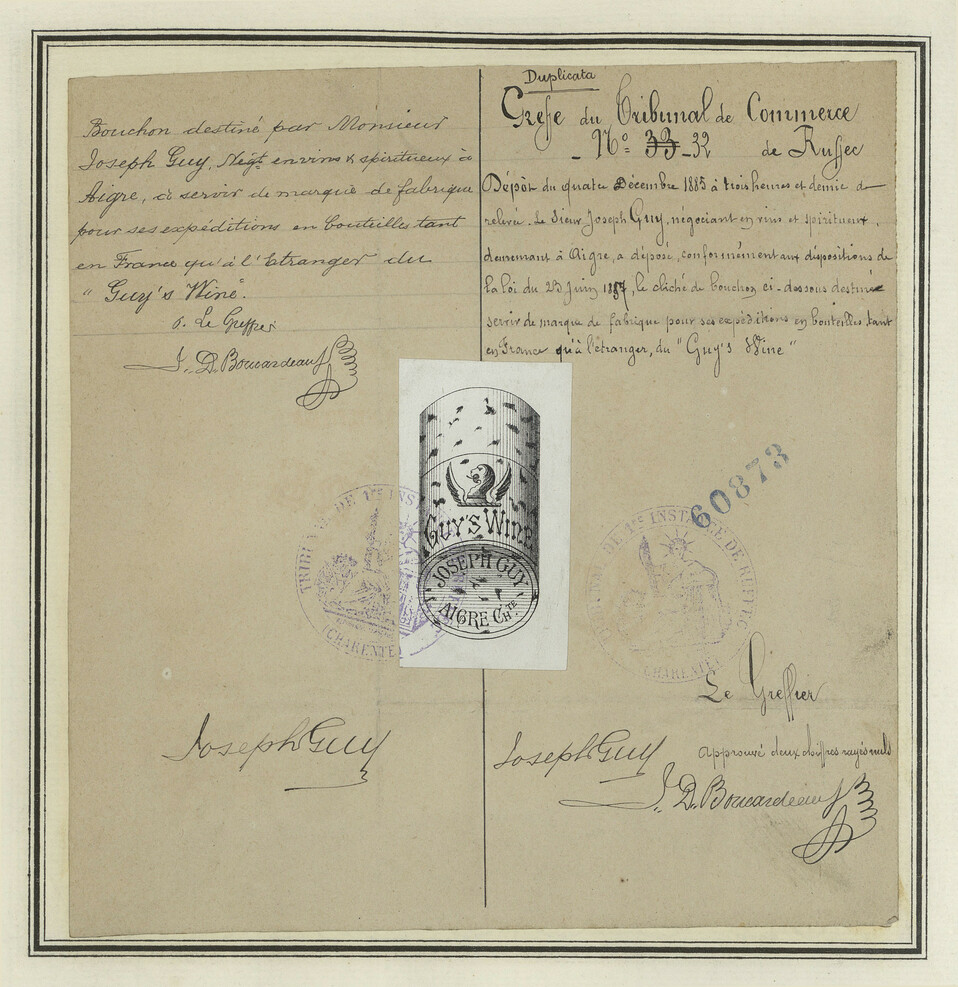 Bouchon destiné par Monsieur
Joseph Guy, Négt en vins & spiritueux à
Aigre, à servir de marque de fabrique
pour ses expéditions en bouteilles tant
en France qu'à l'Etranger du
"Guy's Wine".
Le Greffier
J. D. Bouardeau
Duplicata
Greffe du Tribunal de Commerce
- No 33 - 32 de Ruffec
Dépôt du quatre Décembre 1885 à trois heures et demie de
relevée. Le Sieur Joseph Guy, négociant en vins et spiritueux,
demeurant à Aigre, a déposé, conformément aux dispositions de
la loi du 23 Juin 1857, le cliché de bouchon ci-dessous destiné
servir de marque de fabrique pour ses expéditions en bouteilles, tant
en France qu'à l'étranger, du "Guy's Wine"
GUY'S WINE
JOSEPH GUY
AIGRE CHTE
TRIBUNAL DE 1RE INST
(CHARENTE)
60873
TRIBUNAL DE 1RE INSTANCE DE RUFFEC
(CHARENTE)
Le Greffier
Joseph Guy
Joseph Guy
approuvé deux chiffres rayés nuls
J. D. Bouardeau